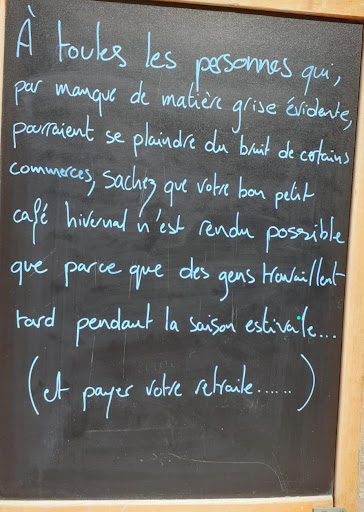 À toutes les personnes qui,
par manque de matière grise évidente,
pourraient se plaindre du bruit de certains
commerces, sachez que votre bon petit
café hivernal n'est rendu possible
que parce que des gens travaillent
tard pendant la saison estivale...
(et payer votre retraite......)